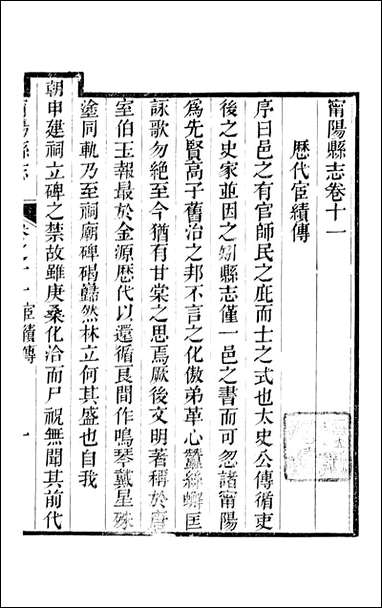 甯陽縣志卷十一
歷代宦績傳
序曰邑之有官師民之庇而士之式也太史公傳循吏
後之史家並因之矧縣志僅一邑之書而可忽諸甯陽
爲先賢高子舊治之邦不言之化傲弟革心蠶絲蠏匡
詠歌勿絶至今猶有甘棠之思焉厥後文明著稱於唐
室伯玉報最於金源歷代以還循良間作鳴琴戴星殊
塗同軌乃至祠廟碑碣巋然林立何其盛也自我
朝申建祠立碑之禁故雖庚桑化洽而尸祝無聞其前代
甯陽縣志
宦績傳